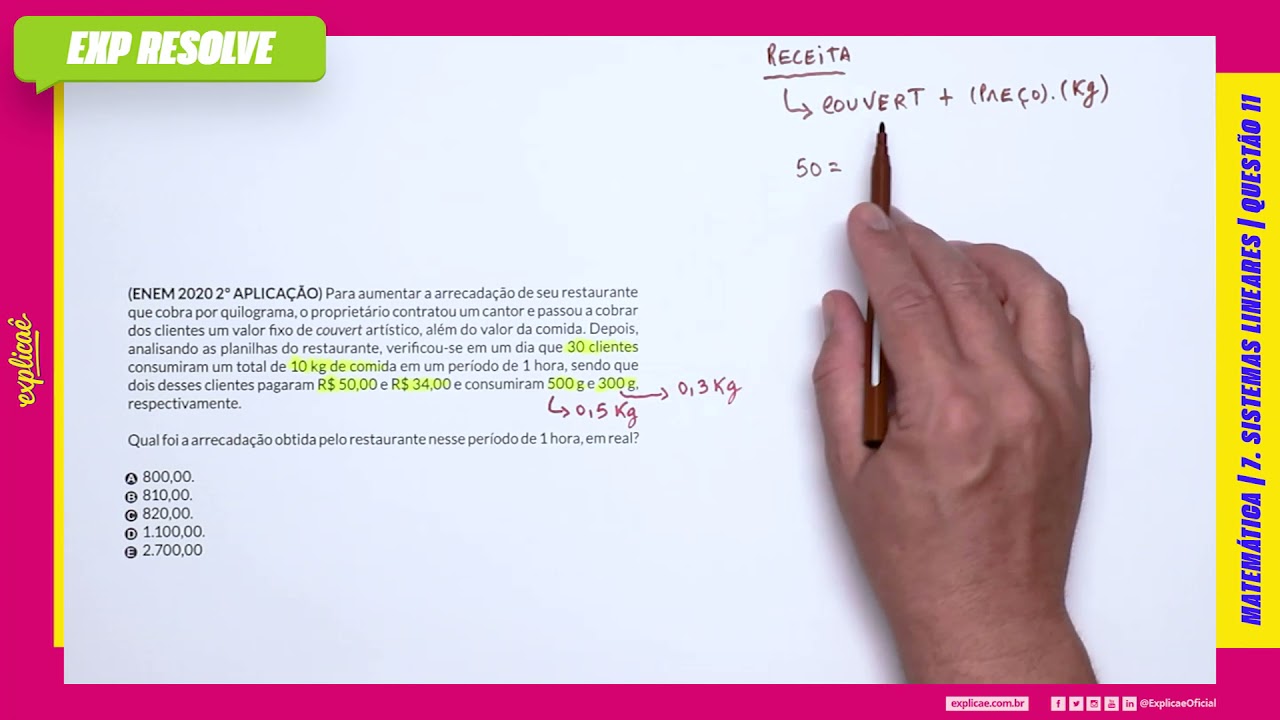 EXP RESOLVE
RECEITA
↳ COUVERT + (PREÇO).(Kg)
50 =
(ENEM 2020 2° APLICAÇÃO) Para aumentar a arrecadação de seu restaurante
que cobra por quilograma, o proprietário contratou um cantor e passou a cobrar
dos clientes um valor fixo de couvert artístico, além do valor da comida. Depois,
analisando as planilhas do restaurante, verificou-se em um dia que 30 clientes
consumiram um total de 10 kg de comida em um período de 1 hora, sendo que
dois desses clientes pagaram R$ 50,00 e R$ 34,00 e consumiram 500 g e 300 g,
respectivamente.
→ 0,3 Kg
↳ 0,5 Kg
Qual foi a arrecadação obtida pelo restaurante nesse período de 1 hora, em real?
A 800,00.
B 810,00.
C 820,00.
D 1.100,00.
E 2.700,00
explicaê
MATEMÁTICA | 7. SISTEMAS LINEARES | QUESTÃO 11
explicae.com.br
@ExplicaeOficial